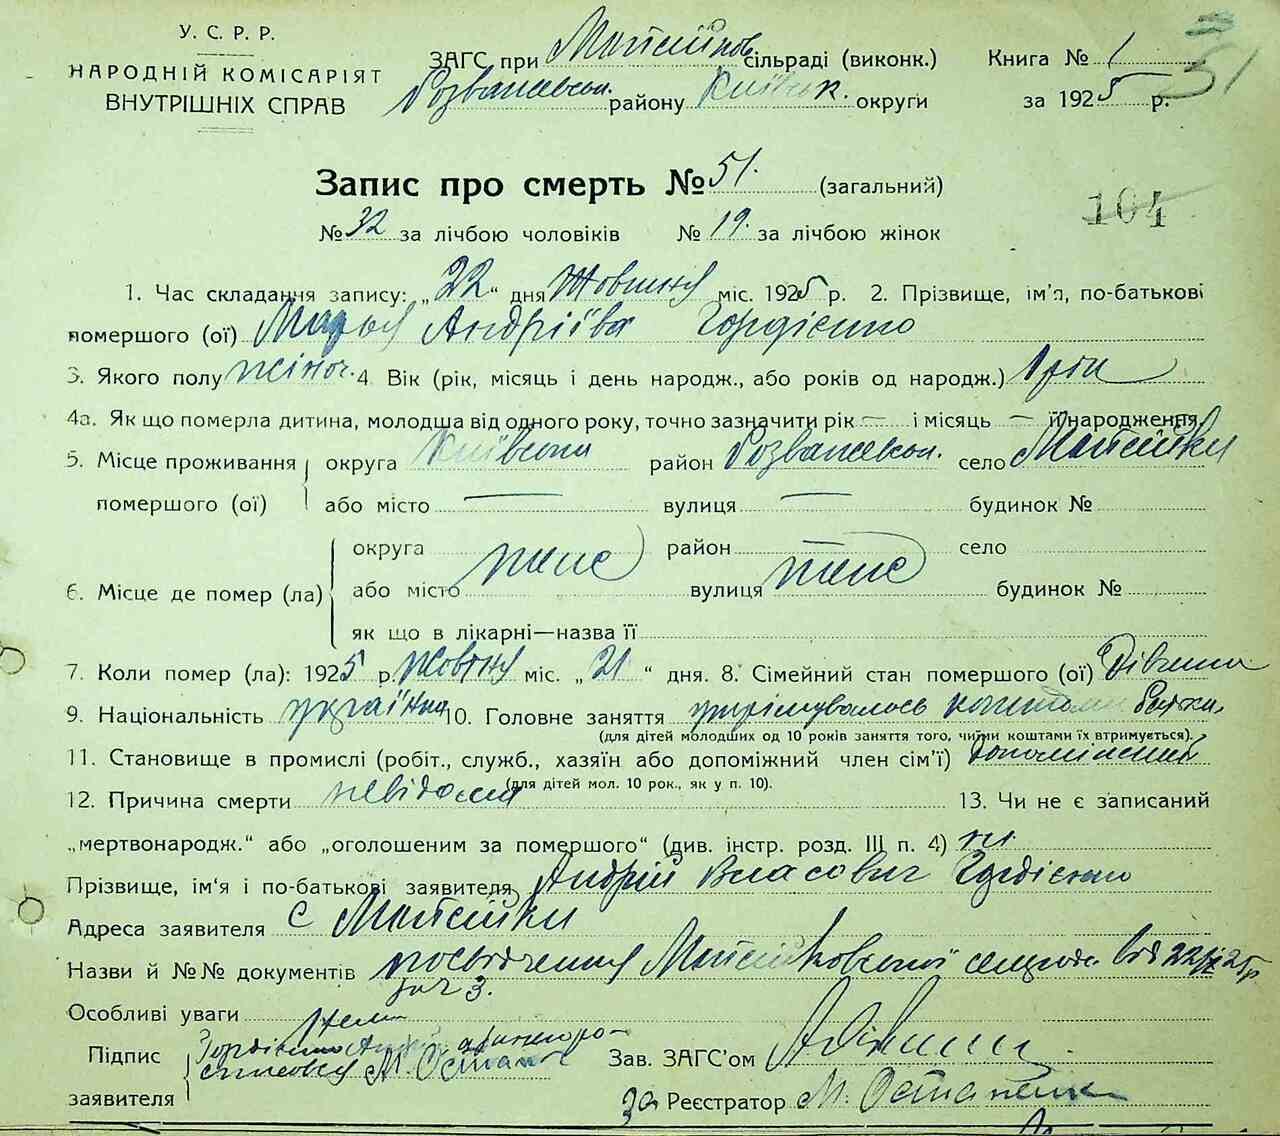 У. С. Р. Р.
НАРОДНІЙ КОМІСАРІЯТ
ВНУТРІШНІХ СПРАВ
ЗАГС при сільраді (виконк.)
Розважевськ. району Київськ. округи
Книга № 1
за 1925 р.
51
Запис про смерть № 51. (загальний)
104
№ 32 за лічбою чоловіків № 19. за лічбою жінок
1. Час складання запису: „22“ дня Жовтня міс. 1925 р. 2. Прізвище, ім'я, по-батькові
помершого (ої) Марья Андріїва Гордієнко
3. Якого полу жіноч. 4. Вік (рік, місяць і день народж., або років од народж.)
4а. Як що померла дитина, молодша від одного року, точно зазначити рік — і місяць — її народження
5. Місце проживання помершого (ої) округа Київська район Розважевськ. село
або місто — вулиця — будинок №
6. Місце де помер (ла) округа район село
або місто теж вулиця теж будинок №
як що в лікарні—назва її
7. Коли помер (ла): 1925 р. Жовтня міс. „21“ дня. 8. Сімейний стан помершого (ої) Дівчина
9. Національність українка 10. Головне заняття утрімувалось коштами батька
(для дітей молодших од 10 років заняття того, чиїми коштами їх втримується).
11. Становище в промислі (робіт., служб., хазяїн або допоміжний член сім'ї)
(для дітей мол. 10 рок., як у п. 10).
12. Причина смерти невідома 13. Чи не є записаний
„мертвонародж.“ або „оголошеним за помершого“ (див. інстр. розд. III п. 4) ні
Прізвище, ім'я і по-батькові заявителя Андрій Власович Гордієнко
Адреса заявителя с
Назви й №№ документів посвідчення сельради від 22/X 25 р
за ч 3.
Особливі уваги Нема
Підпис заявителя Гордієнко М. Остапенко
Зав. ЗАГС'ом
За Реєстратор М. Остапенко